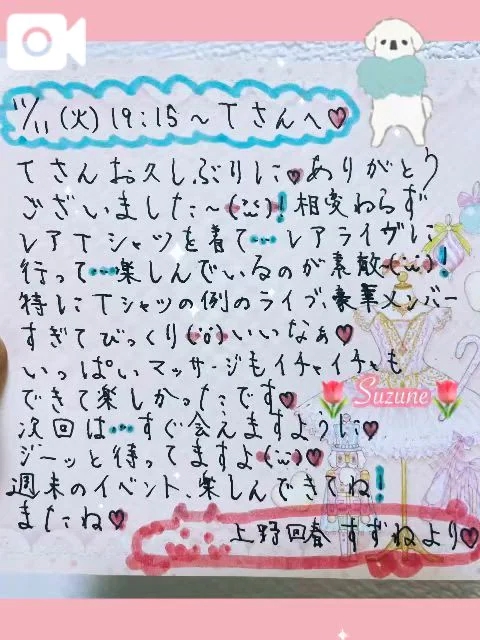 11/11(火)19:15～Tさんへ♡
Tさんお久しぶりに♡ありがとう
ございました～(¨̮)!相変わらず
レアTシャツを着て…レアライヴに
行って…楽しんでいるのが素敵(¨̮)!
特にTシャツの例のライブ、豪華メンバー
すぎてびっくり(ö)いいなぁ♡
いっぱいマッサージもイチャイチャも
できて楽しかったです♡
次回は…すぐ会えますように♡
ジーッと待ってますよ(¨̮)♡
週末のイベント、楽しんできてね!
またね♡
上野回春 すずねより♡
Suzune